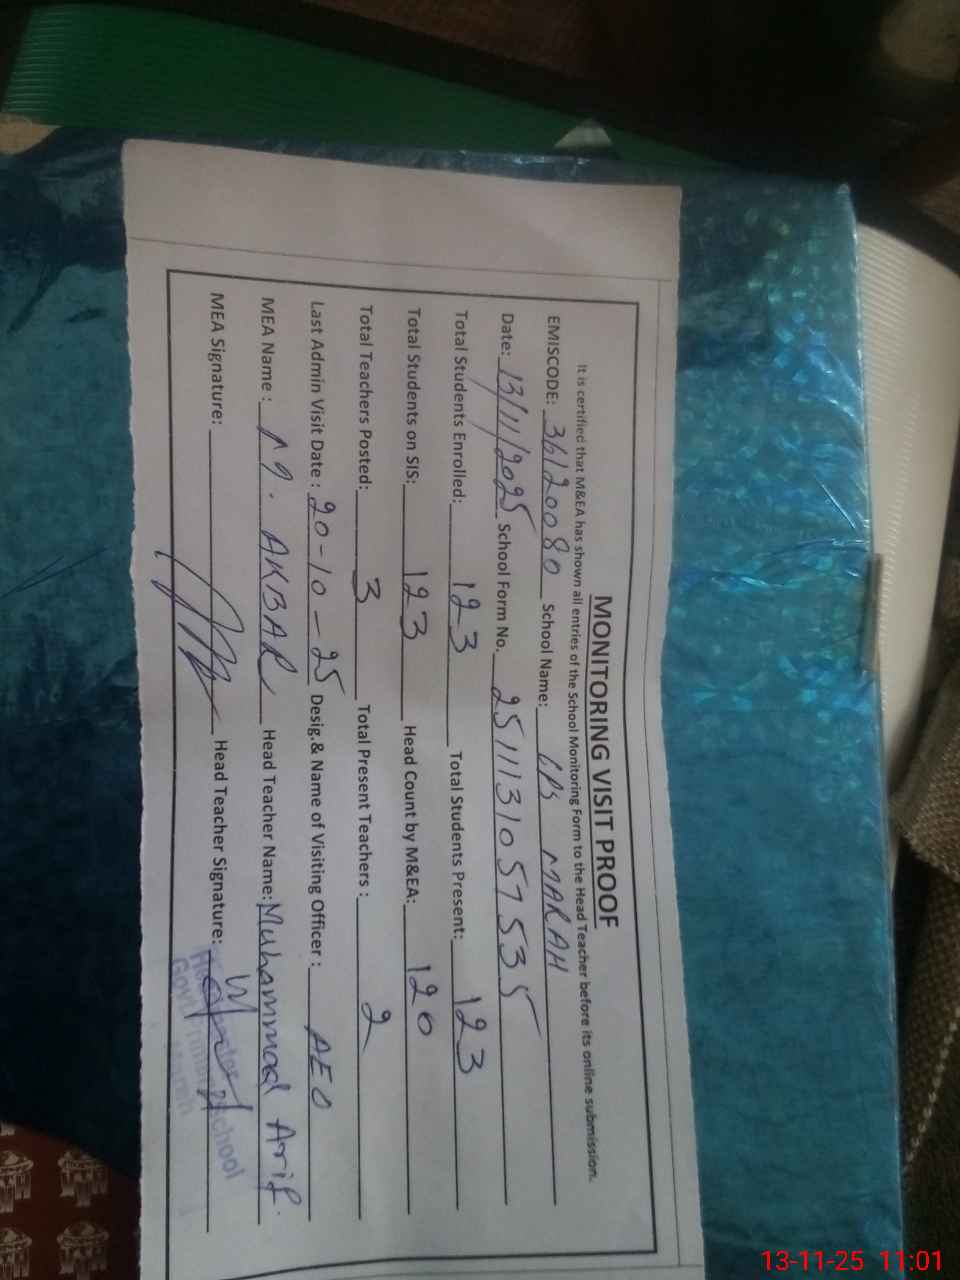 MONITORING VISIT PROOF
It is certified that M&EA has shown all entries of the School Monitoring Form to the Head Teacher before its online submission.
EMISCODE: 36120080 School Name: GPS MARAH
Date: 13/11/2025 School Form No. 2511131057535
Total Students Enrolled: 123 Total Students Present: 123
Total Students on SIS: 123 Head Count by M&EA: 120
Total Teachers Posted: 3 Total Present Teachers : 2
Last Admin Visit Date : 20-10-25 Desig.& Name of Visiting Officer : AEO
MEA Name : M. AKBAR Head Teacher Name: Muhammad Arif.
MEA Signature: Head Teacher Signature:
Govt Primary School
13-11-25 11:01